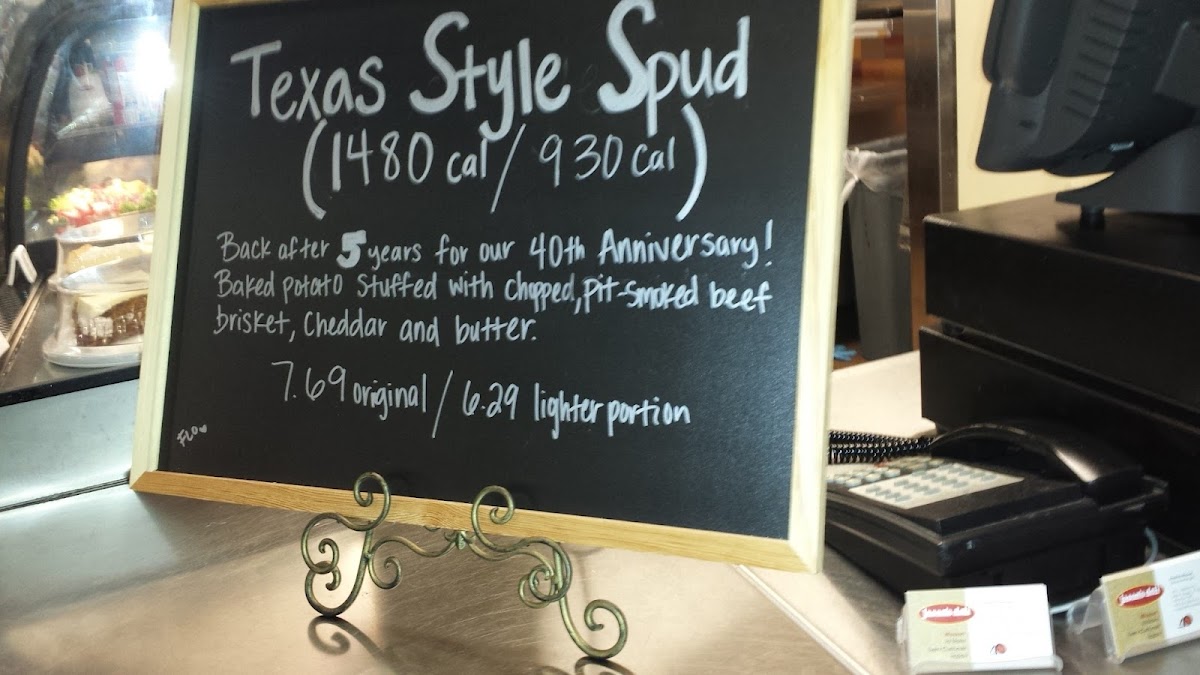 Texas Style Spud
(1480 cal / 930 Cal)
Back after 5 years for our 40th Anniversary!
Baked potato stuffed with chopped, pit-smoked beef
brisket, Cheddar and butter.
7.69 original / 6.29 lighter portion
FLO
jason's deli
jason's deli